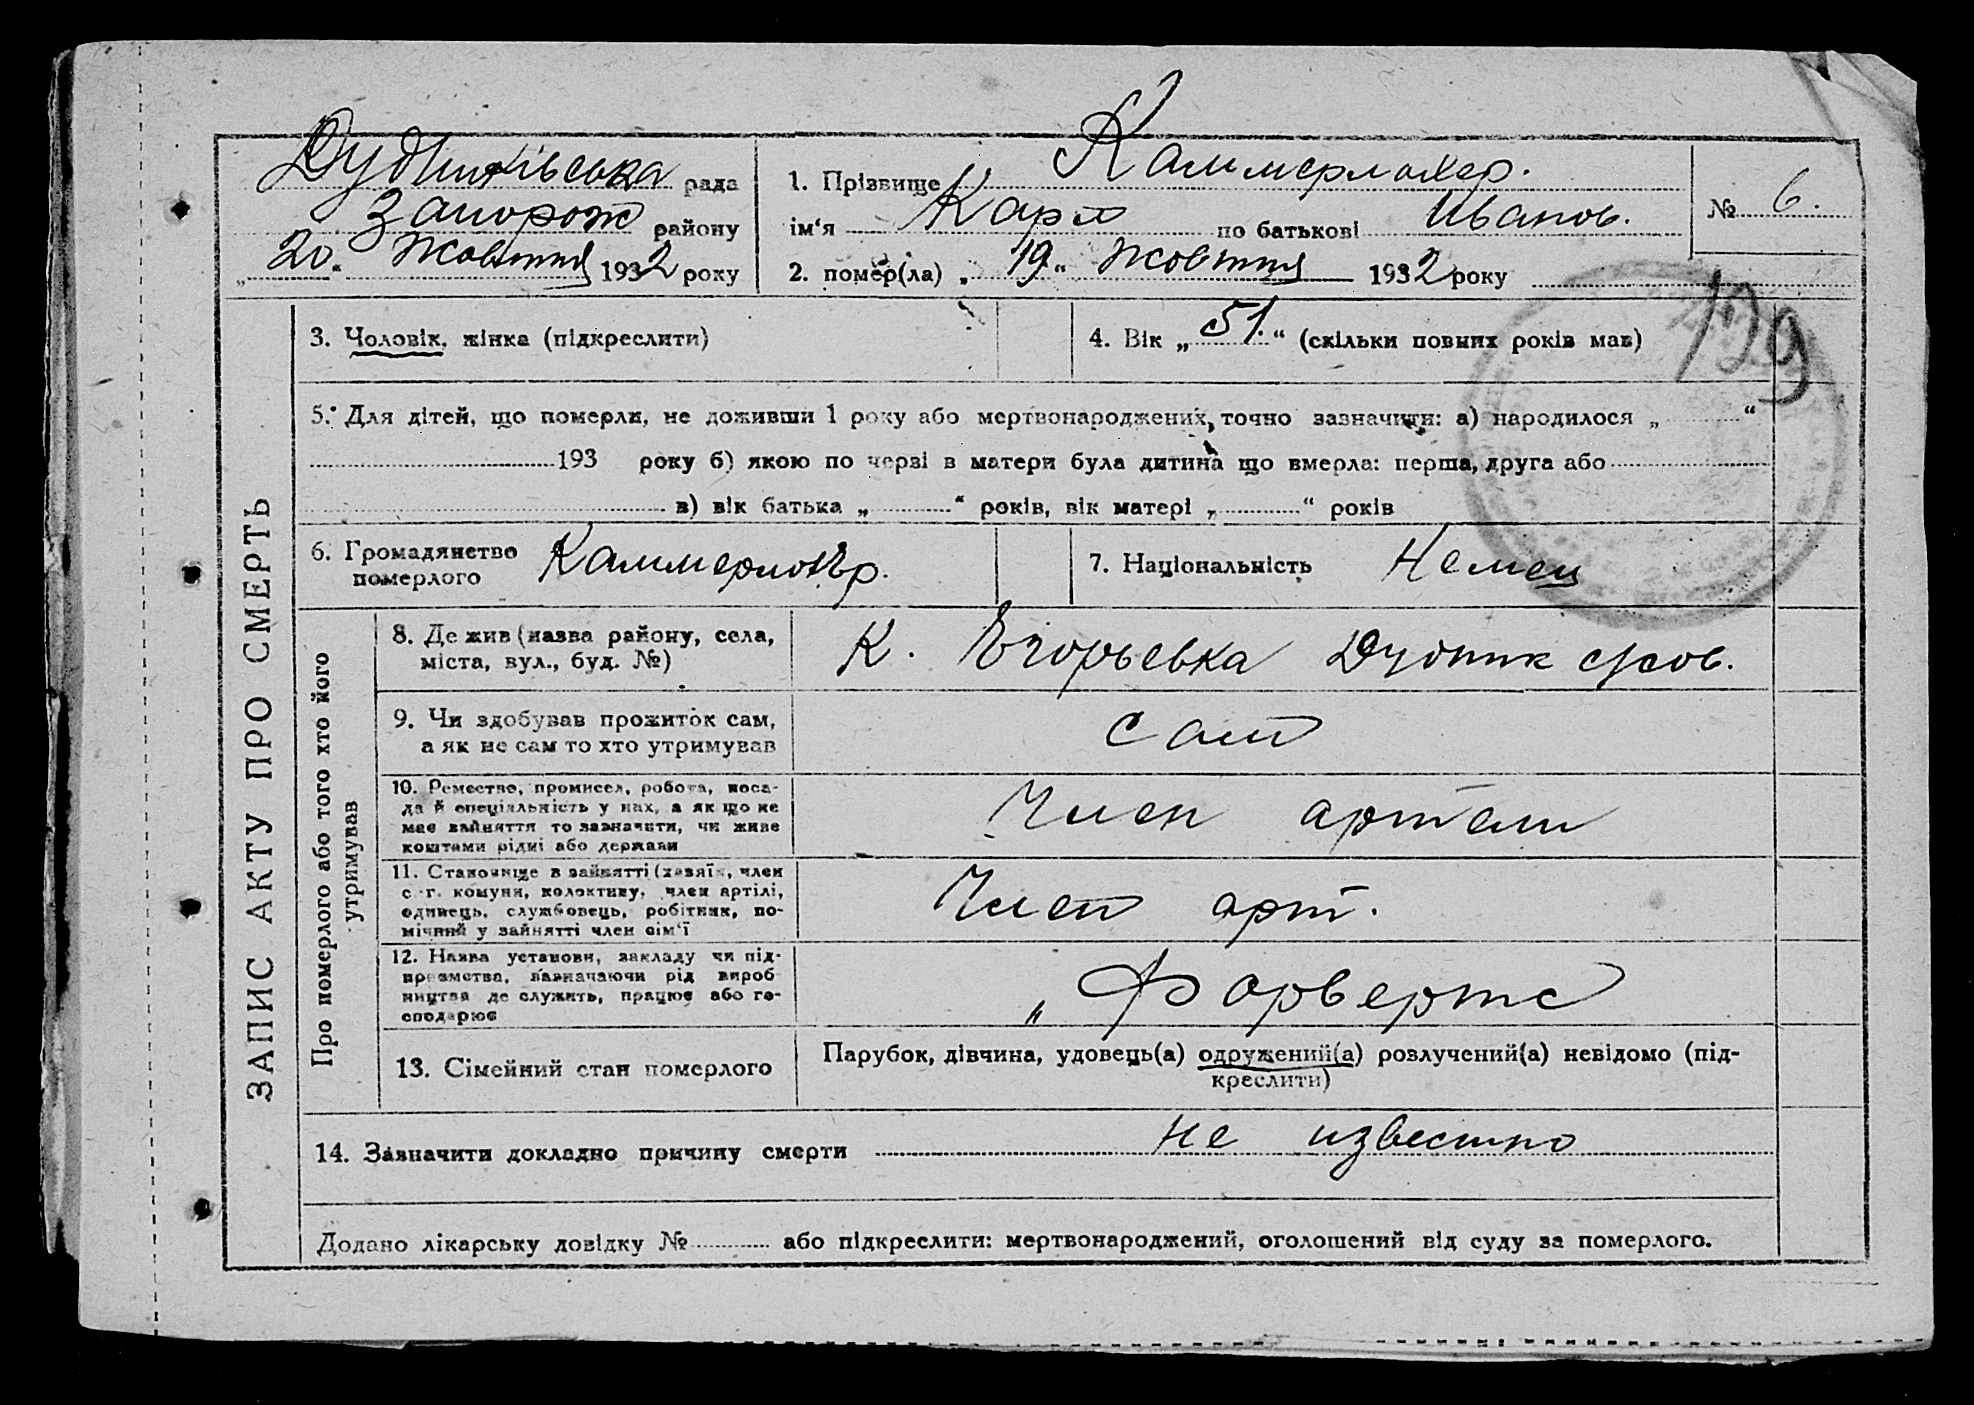 рада
Запорож району
„20“ Жовтня 1932 року
1. Прізвище Каммерлохер.
ім‘я Карл по батькові Иванов.
2. помер(ла) „19“ Жовтня 1932 року
№ 6.
129
3. Чоловік, жінка (підкреслити)
4. Вік „51.“ (скільки повних років мав)
5. Для дітей, що померли, не доживши 1 року або мертвонароджених, точно зазначити: а) народилося „ “
193 року б) якою по черзі в матери була дитина що вмерла: перша, друга або
в) вік батька „ “ років, вік матері „ “ років
6. Громадянство
померлого
7. Національність Немец
ЗАПИС АКТУ ПРО СМЕРТЬ
Про померлого або того хто його
утримував
8. Де жив (назва району, села,
міста, вул., буд. №)
К. Егорьевка
9. Чи здобував прожиток сам,
а як не сам то хто утримував
сам
10. Ремество, промисел, робота, поса-
да й спеціяльність у них, а як що не
має зайняття то зазначити, чи живе
коштами рідні або держави
Член артели
11. Становище в зайнятті (хазяїн, член
с.-г. комуни, колективу, член артілі,
одинець, службовець, робітник, по-
мічний у зайнятті член сім‘ї
Член арт.
12. Назва установи, закладу чи під-
приємства, зазначаючи рід вироб-
ництва де служить, працює або го-
сподарює
„Форвертс
13. Сімейний стан померлого
Парубок, дівчина, удовець(а) одружений(а) розлучений(а) невідомо (під-
креслити)
14. Зазначити докладно причину смерти не известно
Додано лікарську довідку № або підкреслити: мертвонароджений, оголошений від суду за померлого.